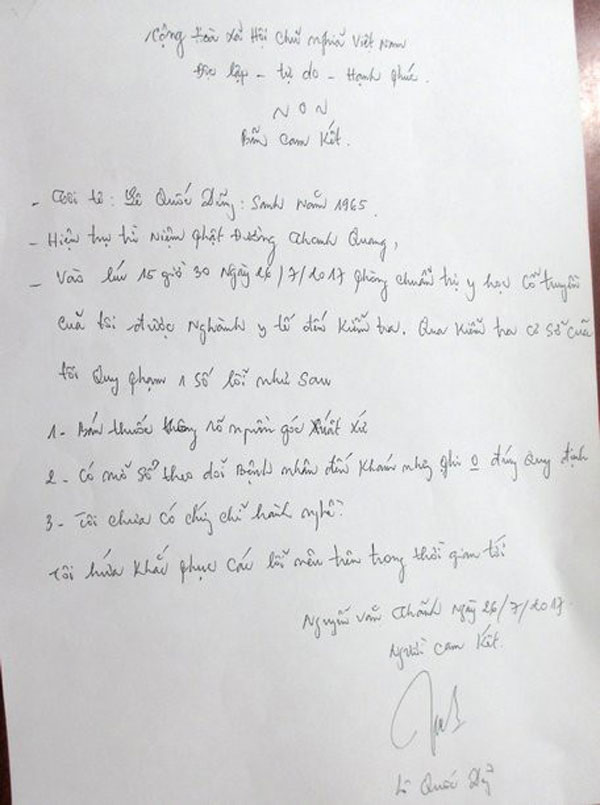 Cộng Hoà Xã Hội Chủ nghĩa Việt Nam
Độc lập - tự do - Hạnh phúc.
Bản Cam Kết.
- Tôi tê: Lê Quốc Dũng: Sanh Năm 1965.
- Hiện trụ trì Niệm Phật Đường Thanh Quang,
- Vào lúc 15 giờ 30 Ngày 26/7/2017 Phòng chuẩn trị y học Cổ truyền
của tôi được Nghành y tế đến Kiểm tra. Qua Kiểm tra cơ sở của
tôi Quy phạm 1 số lỗi như Sau
1- Bán thuốc không rõ nguồn góc Xuất Xứ
2- Có mở Sổ theo dõi Bệnh nhân đến Khám nhưng ghi 0 đúng Quy định
3- Tôi chưa có chứng chỉ hành nghề.
Tôi hứa Khắc phục các lỗi nêu trên trong thời gian tới
Nguyễn Văn Thành Ngày 26/7/2017.
Người Cam Kết.
Lê Quốc Dũng